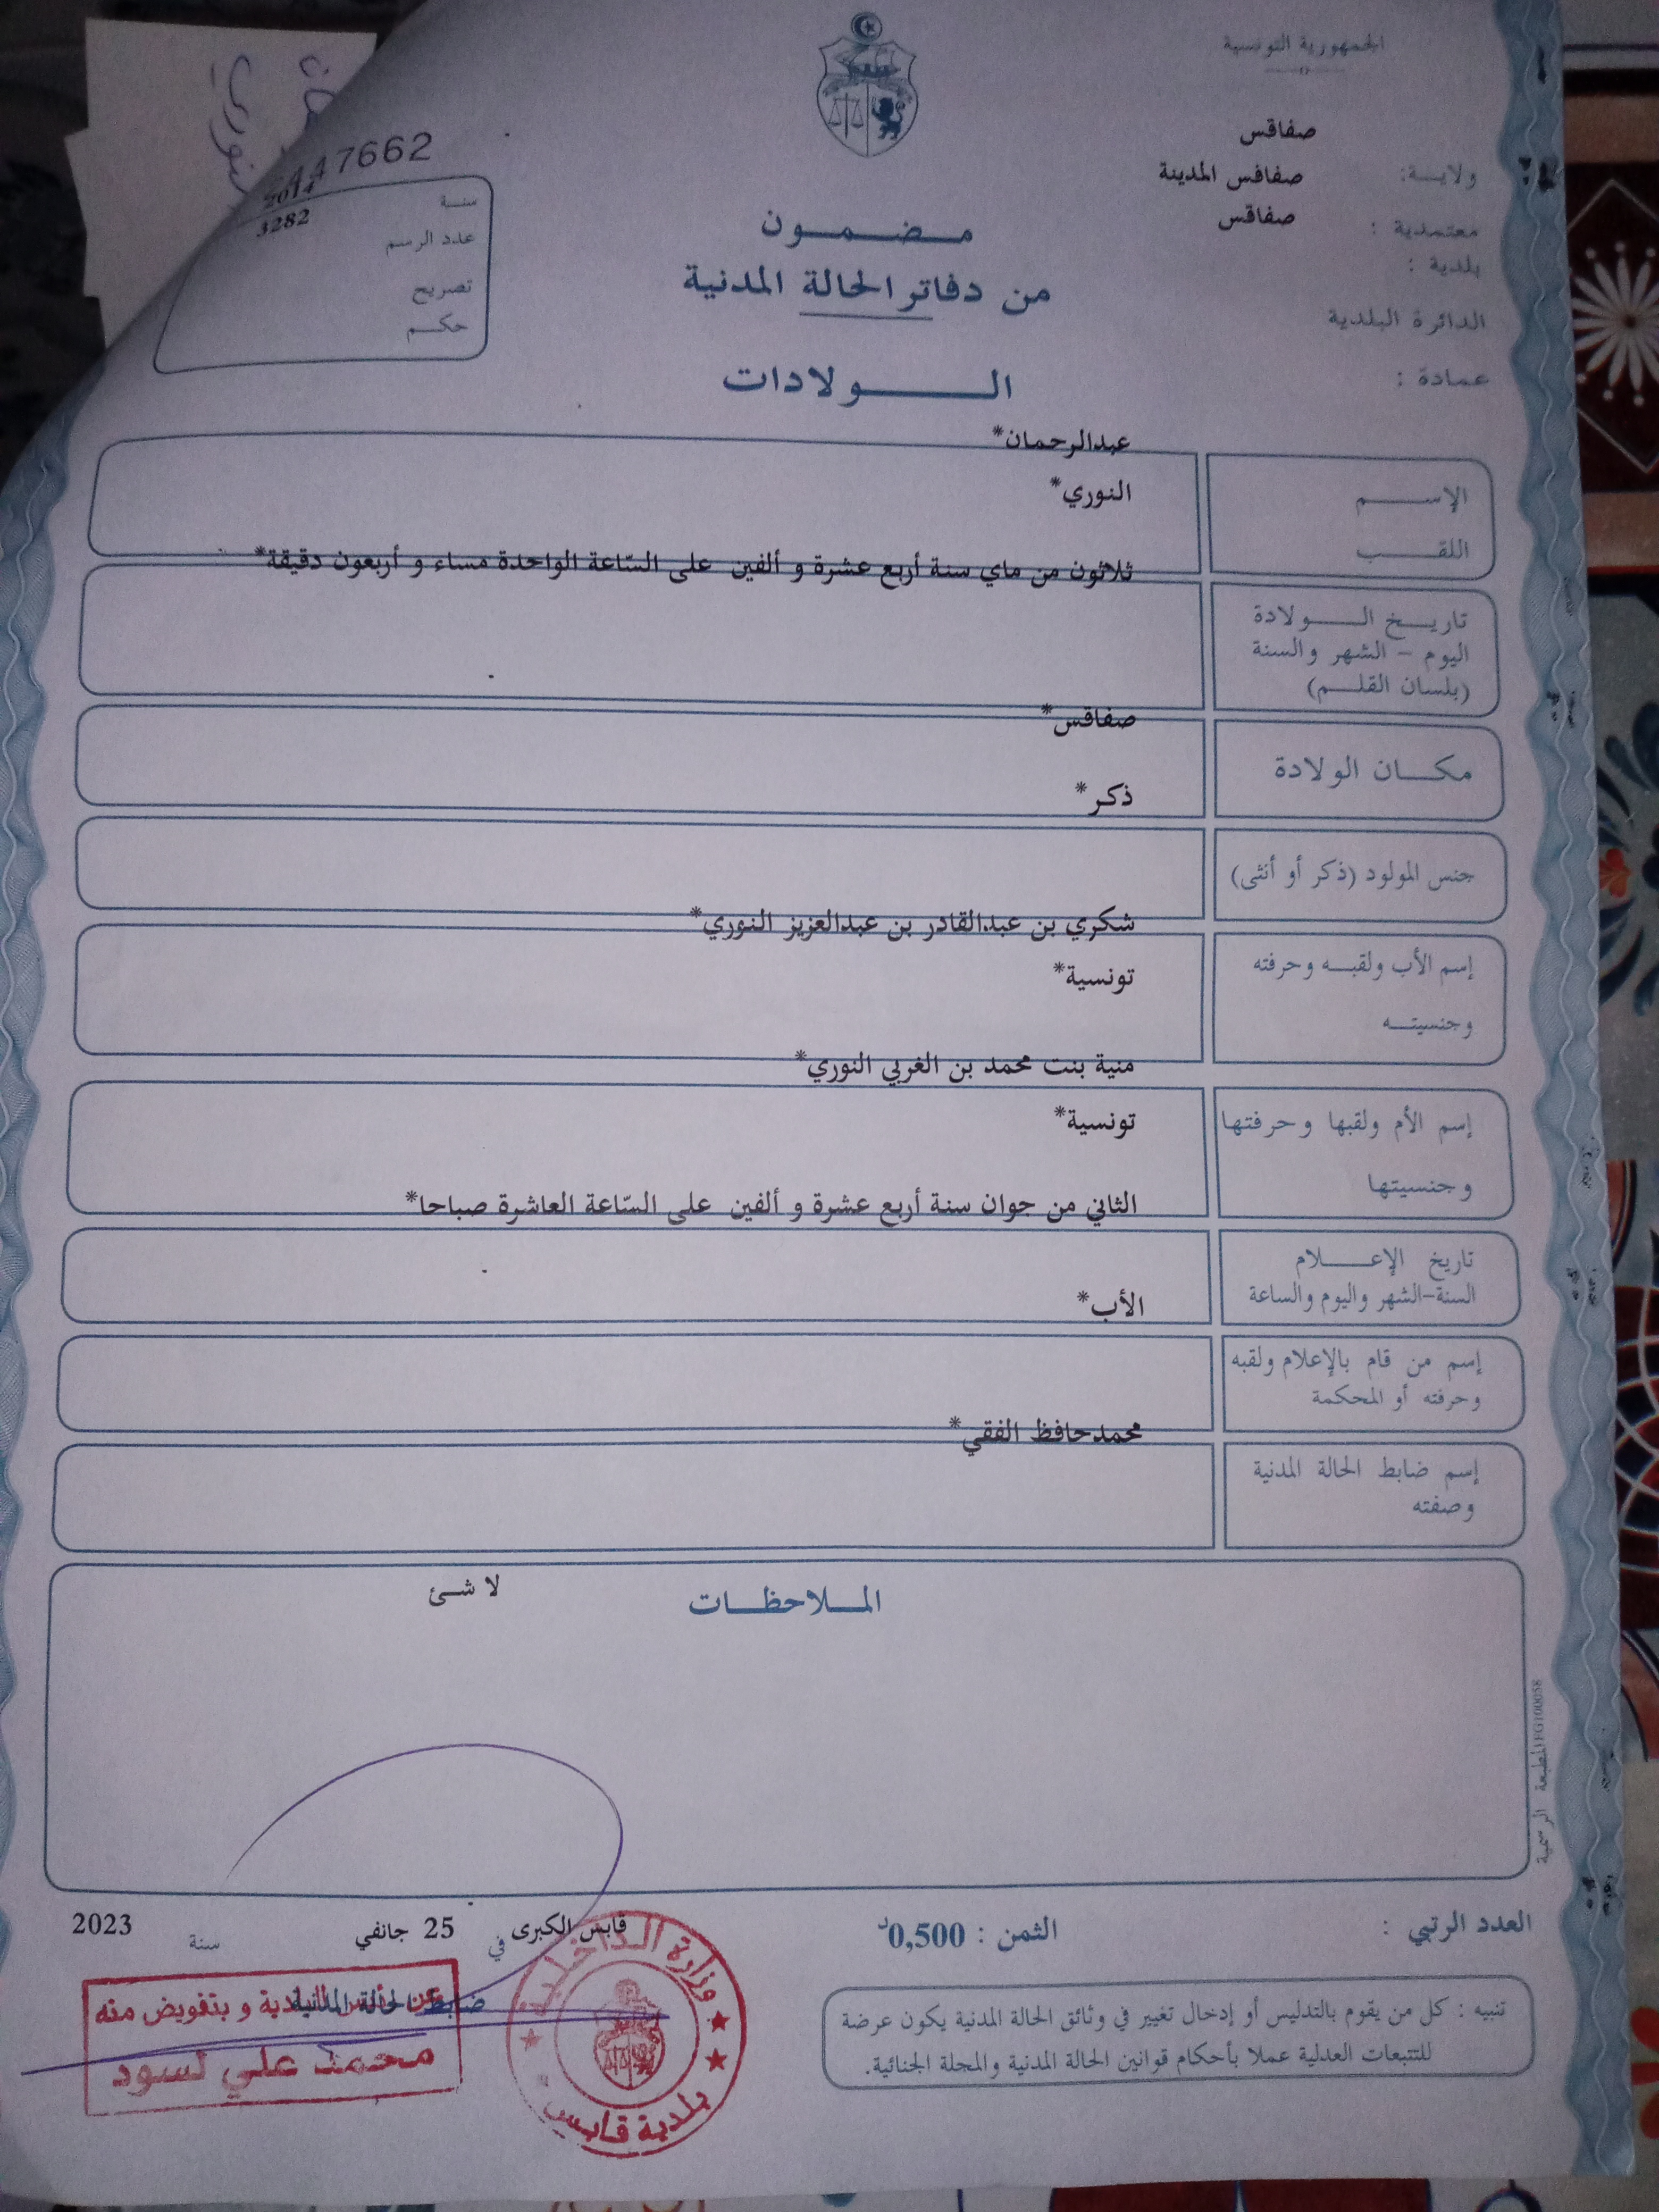 الجمهورية التونسية
صفاقس
ولايـــة: صفاقس المدينة
معتمدية : صفاقس
بلدية :
الدائرة البلدية
عمادة :
47662
سنــة 2014
عدد الرسم 3282
تصريح
حكــم
مـــضـــمـــون
من دفاتر الحالة المدنية
الـــــولادات
عبدالرحمان*
الإســـــم النوري*
اللقـــــب
ثلاثون من ماي سنة أربع عشرة و ألفين على السّاعة الواحدة مساء و أربعون دقيقة*
تاريـــخ الـــــولادة
اليوم - الشهر والسنة
(بلسان القلـــم)
صفاقس*
مكـــان الولادة
ذكر*
جنس المولود (ذكر أو أنثى)
شكري بن عبدالقادر بن عبدالعزيز النوري*
إسم الأب ولقبــه وحرفته تونسية*
وجنسيتــه
منية بنت محمد بن الغربي النوري*
إسم الأم ولقبها وحرفتها تونسية*
وجنسيتها
الثاني من جوان سنة أربع عشرة و ألفين على السّاعة العاشرة صباحا*
تاريخ الإعـــــلام
السنة-الشهر واليوم والساعة
الأب*
إسم من قام بالإعلام ولقبه
وحرفته أو المحكمة
محمدحافظ الفقي*
إسم ضابط الحالة المدنية
وصفته
المــلاحظـــات لا شئ
المطبعة الرسمية FG100058
العدد الرتبي :
الثمن : 0,500د
قابس الكبرى في 25 جانفي سنة 2023
ضابط الحالة المدنية
عن رئيس البلدية و بتفويض منه
محمد علي لسود
وزارة الداخلية
بلدية قابس
تنبيه : كل من يقوم بالتدليس أو إدخال تغيير في وثائق الحالة المدنية يكون عرضة
للتتبعات العدلية عملا بأحكام قوانين الحالة المدنية والمجلة الجنائية.